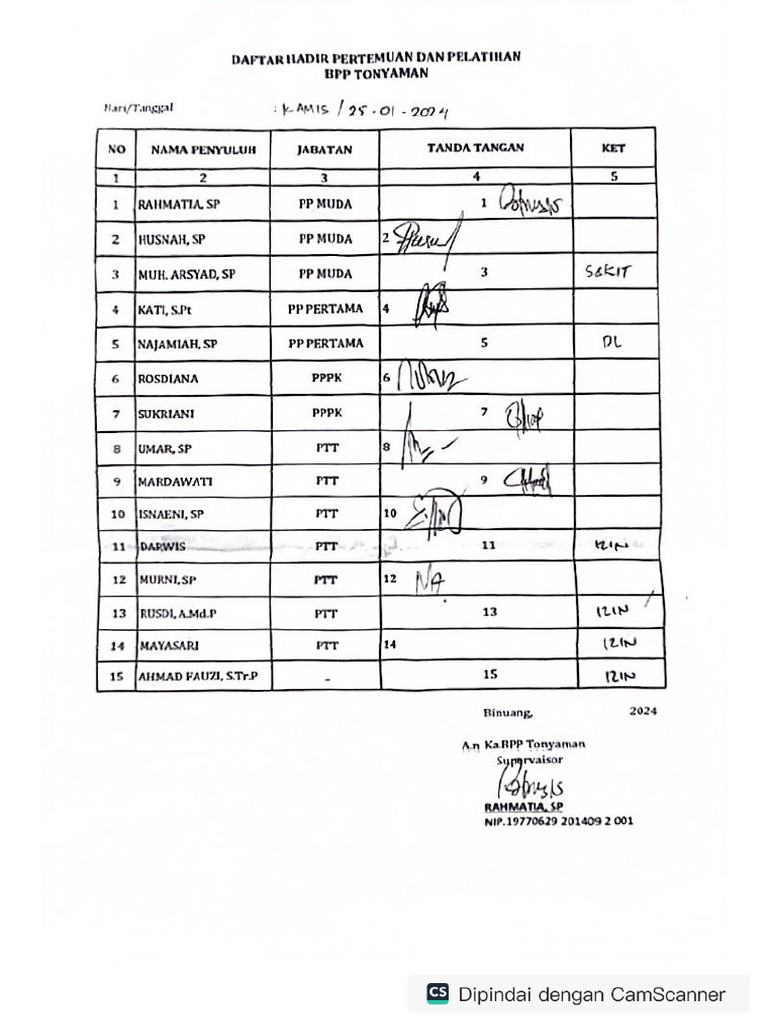 DAFTAR HADIR PERTEMUAN DAN PELATIHAN
BPP TONYAMAN
Hari/Tanggal : KAMIS / 25-01-2024
NO NAMA PENYULUH JABATAN TANDA TANGAN KET
1 2 3 4 5
1 RAHMATIA, SP PP MUDA 1
2 HUSNAH, SP PP MUDA 2
3 MUH. ARSYAD, SP PP MUDA 3 SAKIT
4 KATI, S.Pt PP PERTAMA 4
5 NAJAMIAH, SP PP PERTAMA 5 DL
6 ROSDIANA PPPK 6
7 SUKRIANI PPPK 7
8 UMAR, SP PTT 8
9 MARDAWATI PTT 9
10 ISNAENI, SP PTT 10
11 DARWIS PTT 11 IZIN
12 MURNI, SP PTT 12 NA
13 RUSDI, A.Md.P PTT 13 IZIN
14 MAYASARI PTT 14 IZIN
15 AHMAD FAUZI, S.Tr.P - 15 IZIN
Binuang, 2024
A.n Ka.BPP Tonyaman
Supervaisor
RAHMATIA, SP
NIP.19770629 201409 2 001
CS Dipindai dengan CamScanner